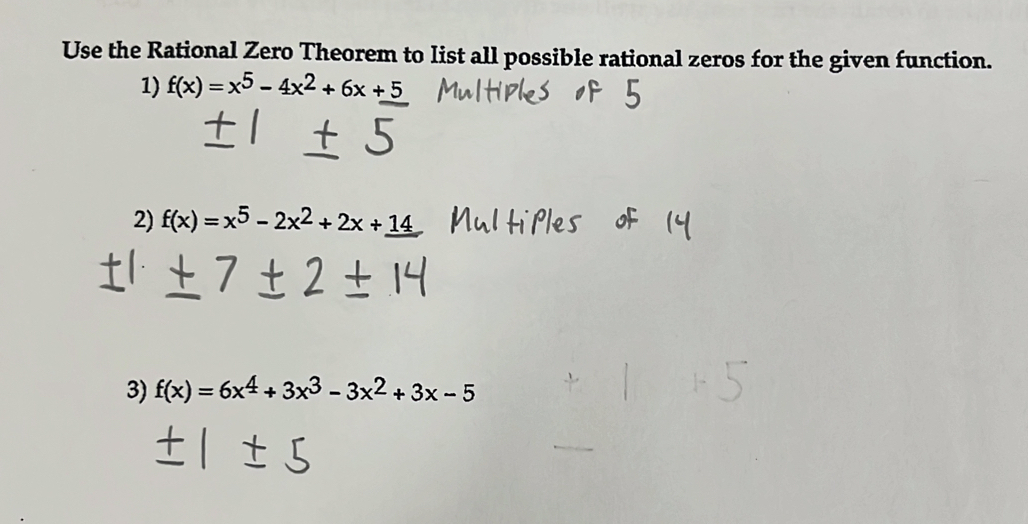 Use the Rational Zero Theorem to list all possible rational zeros for the given function.
1) f(x) = x⁵ – 4x² + 6x + 5 Multiples of 5
±1 ± 5
2) f(x) = x⁵ – 2x² + 2x + 14 Multiples of 14
±1 ± 7 ± 2 ± 14
3) f(x) = 6x⁴ + 3x³ – 3x² + 3x – 5
+ 1 + 5
±1 ± 5